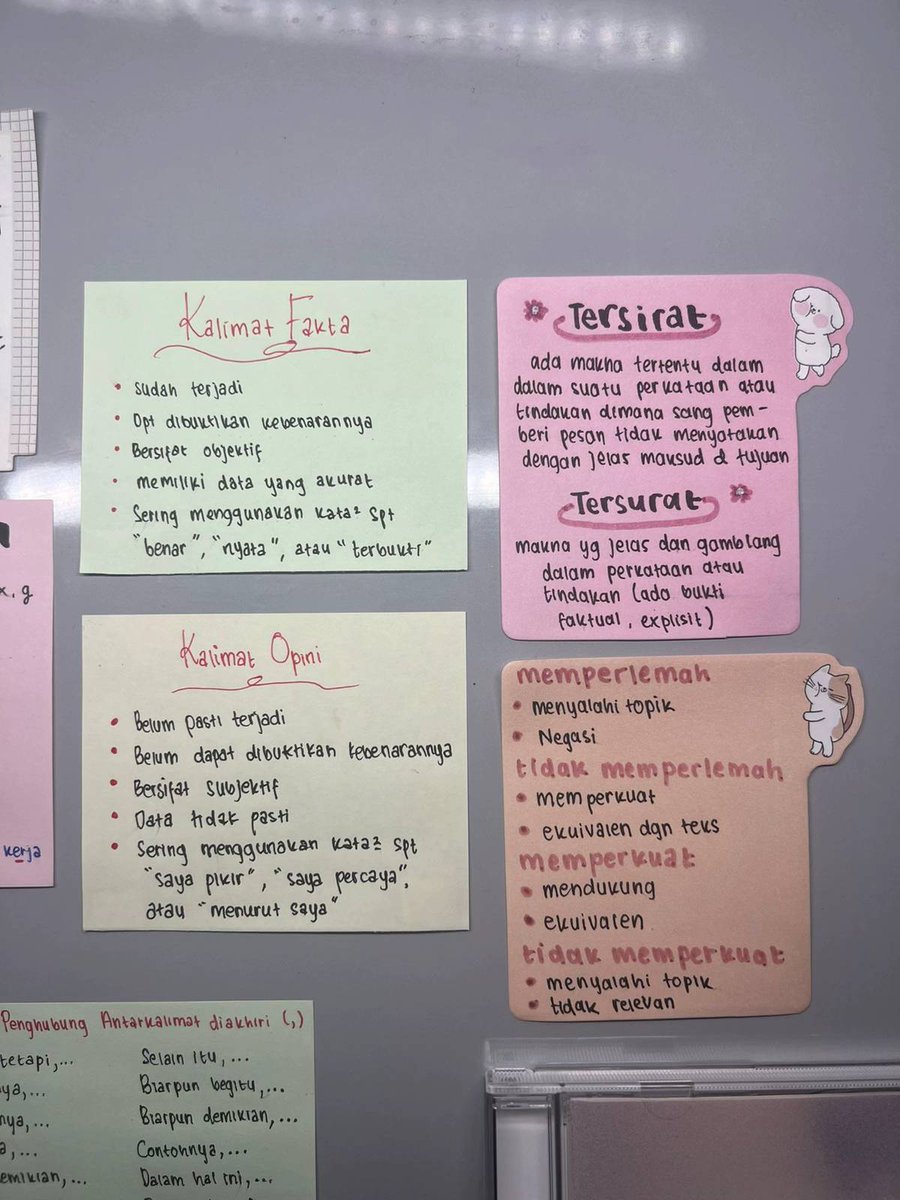 Kalimat Fakta
• Sudah terjadi
• Dpt dibuktikan kebenarannya
• Bersifat objektif
• memiliki data yang akurat
• Sering menggunakan kata² spt
"benar", "nyata", atau "terbukti"
Kalimat Opini
• Belum pasti terjadi
• Belum dapat dibuktikan kebenarannya
• Bersifat subjektif
• Data tidak pasti
• Sering menggunakan kata² spt
"saya pikir", "saya percaya",
atau "menurut saya"
Tersirat
ada makna tertentu dalam
dalam suatu perkataan atau
tindakan dimana sang pem-
beri pesan tidak menyatakan
dengan jelas maksud & tujuan
Tersurat
makna yg jelas dan gamblang
dalam perkataan atau
tindakan (ada bukti
faktual, explisit)
memperlemah
• menyalahi topik
• Negasi
tidak memperlemah
• memperkuat
• ekuivalen dgn teks
memperkuat
• mendukung
• ekuivalen
tidak memperkuat
• menyalahi topik
• tidak relevan
x, g
kerja
Penghubung Antarkalimat diakhiri (,)
tetapi,... Selain itu,...
ya,... Biarpun begitu,...
nya,... Biarpun demikian,...
a,... Contohnya,...
emikian,... Dalam hal ini,...